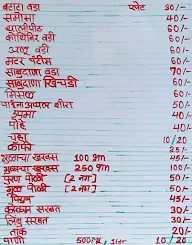 बटाटा वडा प्लेट 30/-
समोसा 40/-
थालीपीठ 60/-
कोथिंबिर वडी 60/-
अळू वडी 60/-
मटर पॅटीस 60/-
साबुदाणा वडा 70/-
साबुदाणा खिचडी 60/-
मिसळ 60/-
पाईनॲप्पल शीरा 50/-
उपमा 40/-
पोहे 40/-
चहा 10/20
कॉफी 25/-
100 gm 45/-
250 gm 100/-
पुरण पोळी [2 नग] 50/-
गुळ पोळी [2 नग] 50/-
पियुष 45/-
कोकम सरबत 30/-
लिंबु सरबत 30/-
ताक 20/-
पाणी 10/20